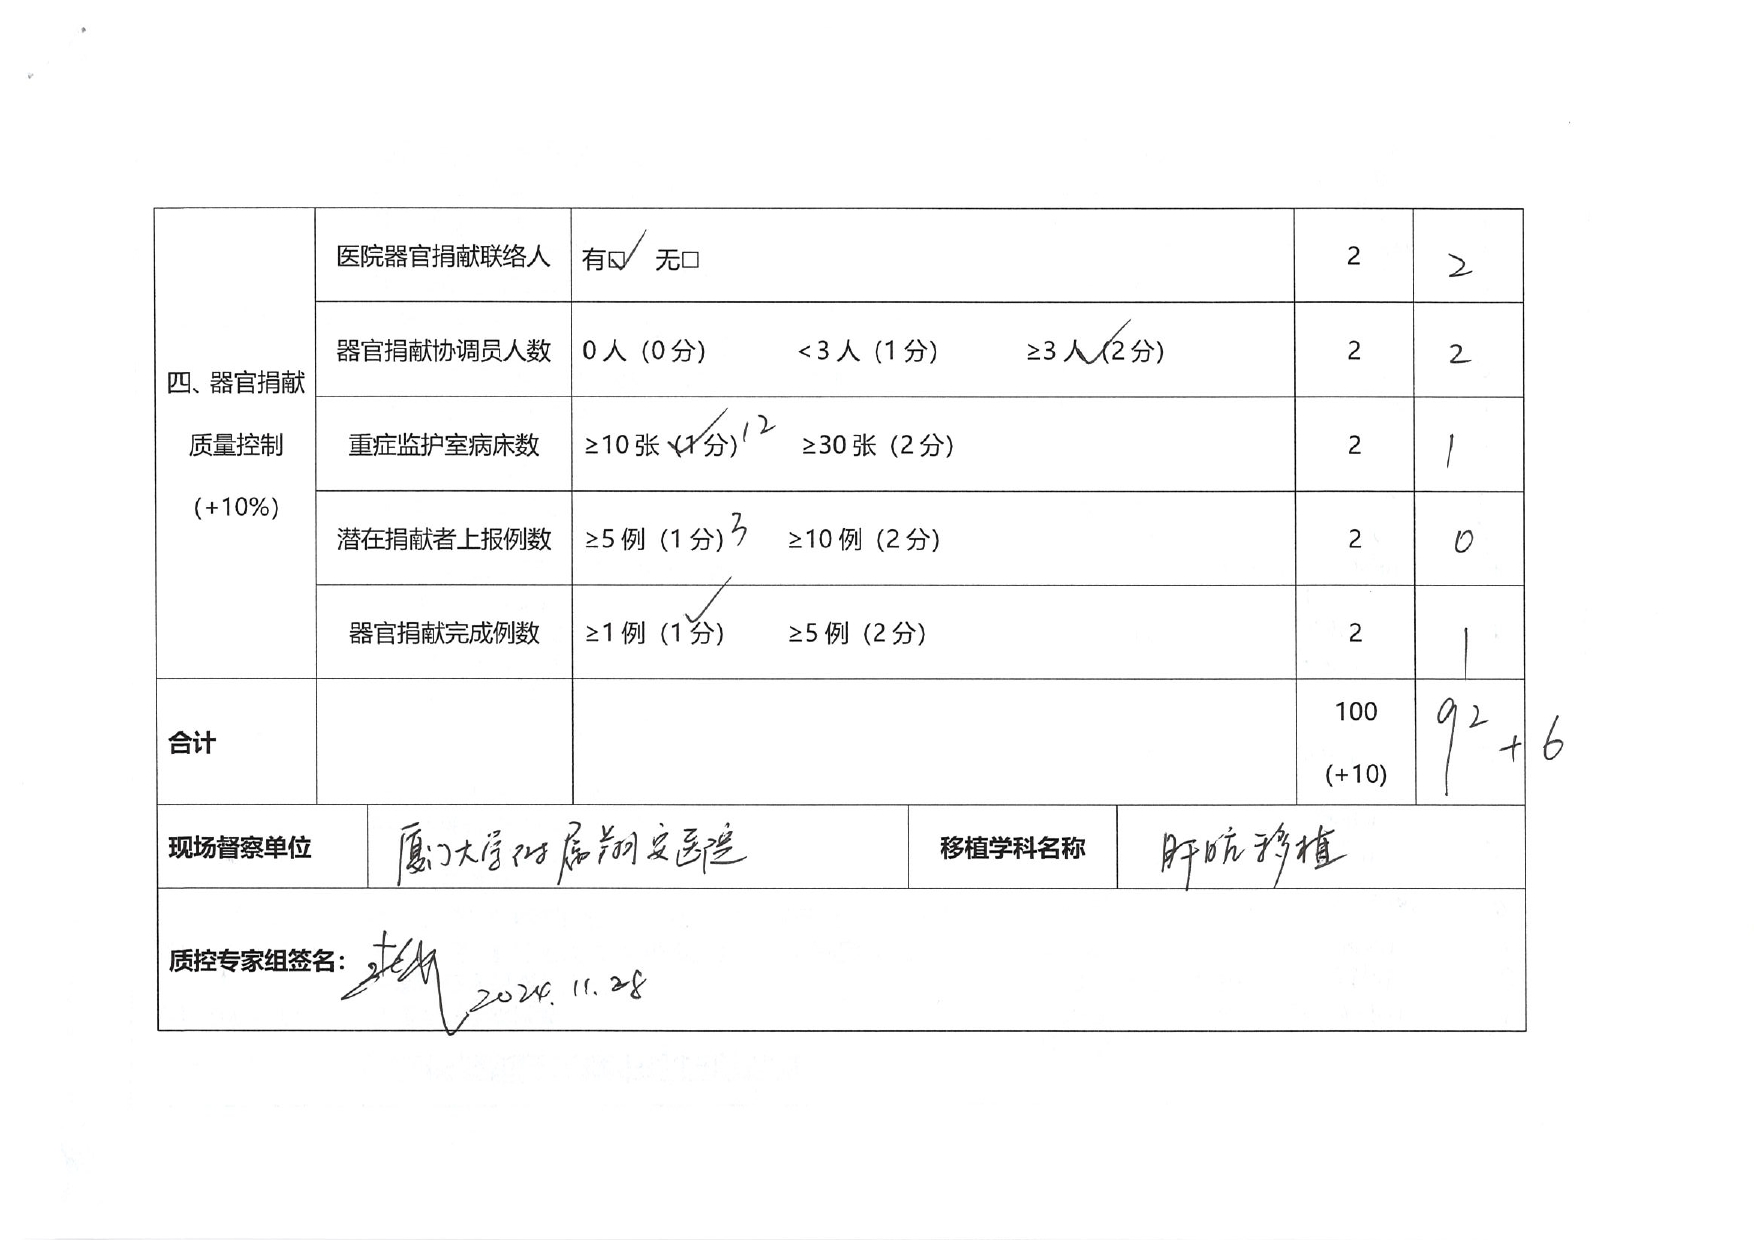 医院器官捐献联络人 有☑ 无□ 2 2
器官捐献协调员人数 0人（0分） <3人（1分） ≥3人（2分）✓ 2 2
四、器官捐献
质量控制
(+10%)
重症监护室病床数 ≥10张（1分）✓ 12 ≥30张（2分） 2 1
潜在捐献者上报例数 ≥5例（1分）3 ≥10例（2分） 2 0
器官捐献完成例数 ≥1例（1分）✓ ≥5例（2分） 2 1
合计 100 92 +6
(+10)
现场督察单位 厦门大学附属翔安医院 移植学科名称 肝脏移植
质控专家组签名： 2024.11.28